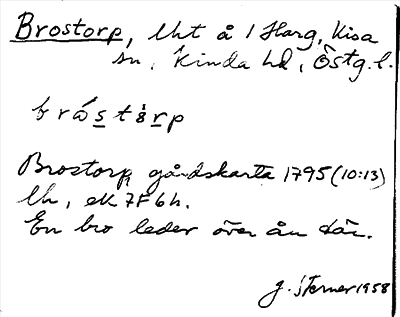 Brostorp, lht å 1 Harg, Kisa
sn, Kinda hd, Östg. l.
bråstərp
Brostorp, gårdskarta 1795 (10:13)
lh, ek 7F6h.
En bro leder över ån där.
g. Sterner 1958